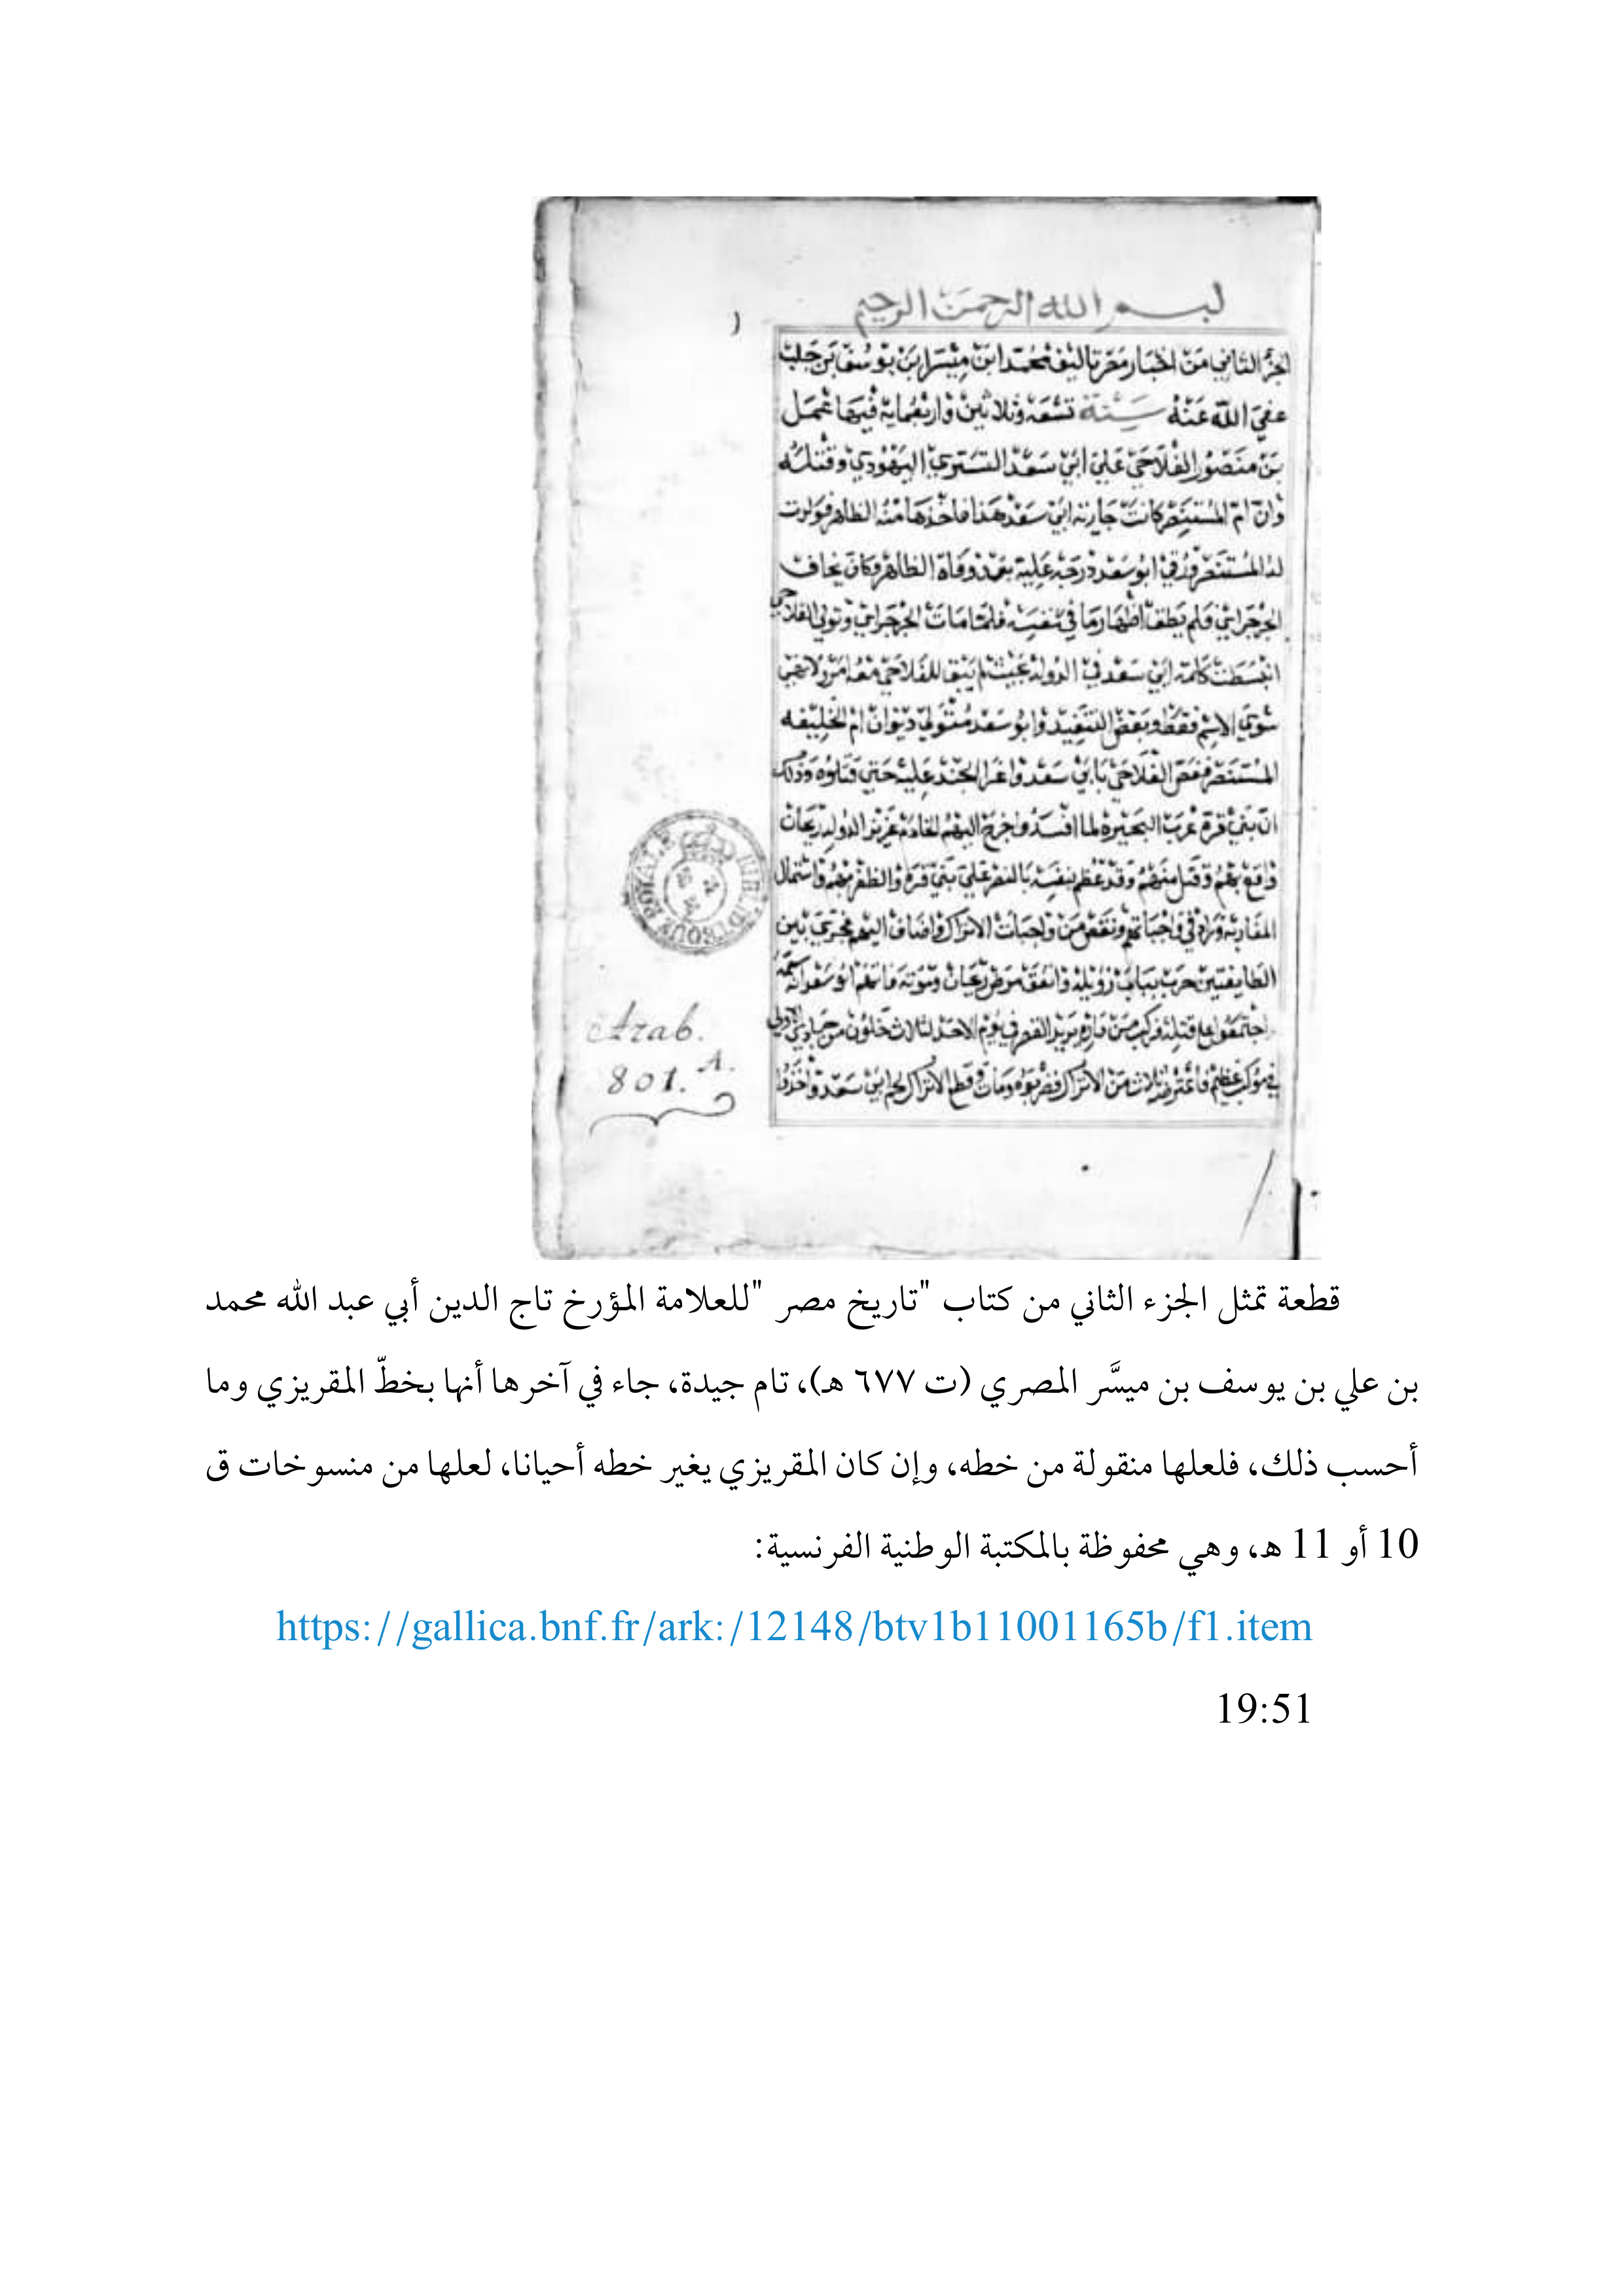 بسم الله الرحمن الرحيم
الجزء الثاني من اخبار مصر تاليف محمد ابن ميسر ابن يوسف بن جلب
عفي الله عنه سنة تسعه وثلاثين واربعماية فيها عمل
بن منصور الفلاحي علي ابي سعد التستري اليهودي وقتله
وان ام المستنصر كانت جارية ابي سعد هذا فاخذها منه الظاهر فولدت
له المستنصر فرقي ابو سعد درجة علية بعد وفاة الظاهر وكان يخاف
الجرجراي فلم يطق اظهار ما في نفسه فلما مات الجرجراي وتولي الفلاحي
انبسطت كلمة ابي سعد في الدولة بحيث لم يبق للفلاحي معه امر ولا نهي
سوي الاسم فقط وبعض التنفيد وابو سعد متولي ديوان ام الخليفه
المستنصر فغض الفلاحي بابي سعد واغرا الجند عليه حتي قتلوه وذلك
ان بني قرة عرب البحيرة لما افسدوا خرج اليهم الخادم عزيز الدولة ريحان
واقع بهم وقتل منهم وقد عظم نفسه بالنصر علي بني قرة والظفر بهم واستمال
المغاربة وزاد في واجباتهم ونقص من واجبات الاتراك واضاف اليهم فجري بين
الطايفتين حرب بباب زويلة واتفق مرض ريحان وموته فاتهم ابو سعد انه سمه
اجتمعوا علي قتله فركب من داره يريد القصر في يوم الاحد لثلاث خلون من جمادي الاولي
في موكب عظيم فاعترضه ثلاث من الاتراك فضربوه ومات وقطع الاتراك لحم ابي سعد واخذوا
BIBLIOTHECAE ROYALE
Arab.
801. A.
قطعة تمثل الجزء الثاني من كتاب "تاريخ مصر "للعلامة المؤرخ تاج الدين أبي عبد الله محمد
بن علي بن يوسف بن ميسَّر المصري (ت ٦٧٧ هـ)، تام جيدة، جاء في آخرها أنها بخطّ المقريزي وما
أحسب ذلك، فلعلها منقولة من خطه، وإن كان المقريزي يغير خطه أحيانا، لعلها من منسوخات ق
10 أو 11 هـ، وهي محفوظة بالمكتبة الوطنية الفرنسية:
https://gallica.bnf.fr/ark:/12148/btv1b11001165b/f1.item
19:51